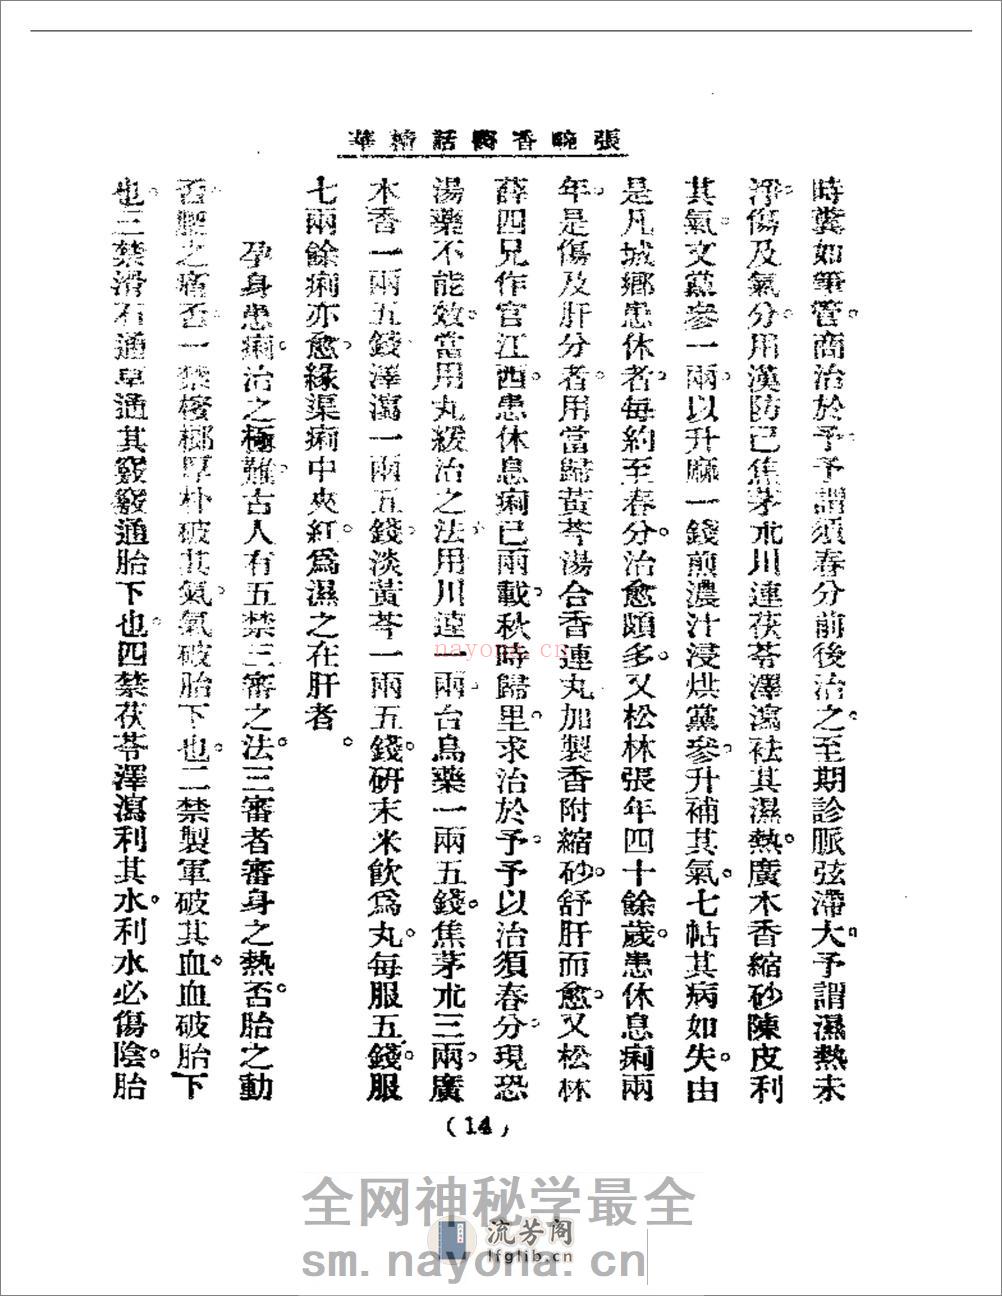 張畹香醫話精華
時糞如筆管。商治於予。予謂須春分前後治之。至期診脈弦滯大。予謂濕熱未
淨。傷及氣分。用漢防己焦茅朮川連茯苓澤瀉袪其濕熱。廣木香縮砂陳皮利
其氣。文黨參一兩。以升麻一錢煎濃汁浸烘黨參。升補其氣。七帖其病如失。由
是凡城鄉患休者。每約至春分。治愈頗多。又松林張年四十餘歲。患休息痢兩
年。是傷及肝分者。用當歸黃芩湯合香連丸加製香附縮砂。舒肝而愈。又松林
薛四兄作官江西。患休息痢已兩載。秋時歸里。求治於予。予以治須春分。現恐
湯藥不能效。當用丸緩治之法。用川連一兩。台烏藥一兩五錢。焦茅朮三兩。廣
木香一兩五錢。澤瀉一兩五錢。淡黃芩一兩五錢。研末米飲爲丸。每服五錢。服
七兩餘痢亦愈。緣渠痢中夾紅。爲濕之在肝者。
孕身患痢。治之極難。古人有五禁三審之法。三審者審身之熱否。胎之動
否。腹之痛否。一禁檳榔厚朴破其氣。氣破胎下也。二禁製軍破其血。血破胎下
也。三禁滑石通草通其竅。竅通胎下也。四禁茯苓澤瀉利其水。利水必傷陰。胎
(14)
nayona.cn
全网神秘学最全
流芳阁
lfglib.cn
sm.nayona.cn